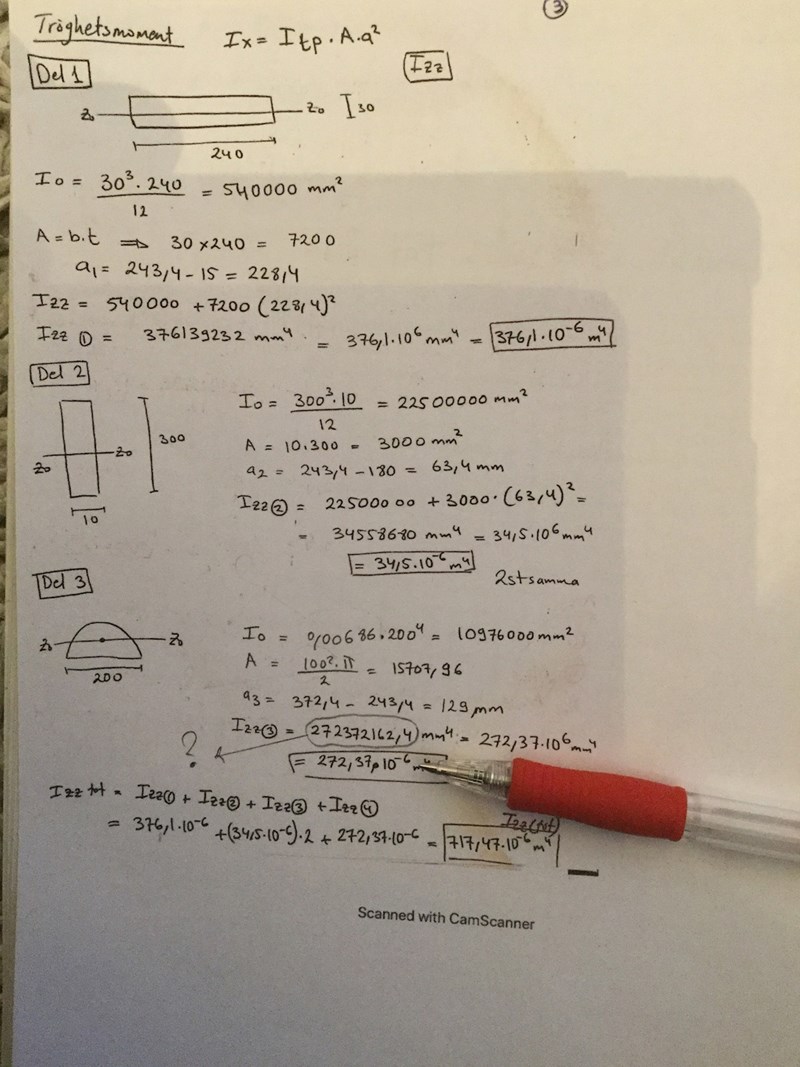 ③
Tröghetsmoment Ix = Itp · A·a²
Del 1 Izz
Z₀ Z₀ 30
240
I₀ = 30³ · 240 / 12 = 540000 mm²
A = b·t ⇒ 30 × 240 = 7200
a₁ = 243,4 - 15 = 228,4
Izz = 540000 + 7200 (228,4)²
Izz ① = 376139232 mm⁴ = 376,1·10⁶ mm⁴ = 376,1·10⁻⁶ m⁴
Del 2
Z₀ Z₀ 300
10
I₀ = 300³·10 / 12 = 22500000 mm²
A = 10·300 = 3000 mm²
a₂ = 243,4 - 180 = 63,4 mm
Izz② = 22500000 + 3000·(63,4)² =
= 34558680 mm⁴ = 34,5·10⁶ mm⁴
= 34,5·10⁻⁶ m⁴
2st samma
Del 3
Z₀ Z₀
200
I₀ = 0,00686·200⁴ = 10976000 mm²
A = 100²·π / 2 = 15707,96
a₃ = 372,4 - 243,4 = 129 mm
Izz③ = 272372162,4 mm⁴ = 272,37·10⁶ mm⁴
?
= 272,37·10⁻⁶ m
Izz tot = Izz① + Izz② + Izz③ + Izz④
= 376,1·10⁻⁶ + (34,5·10⁻⁶)·2 + 272,37·10⁻⁶ = 717,47·10⁻⁶ m⁴
Izz(tot)
Scanned with CamScanner